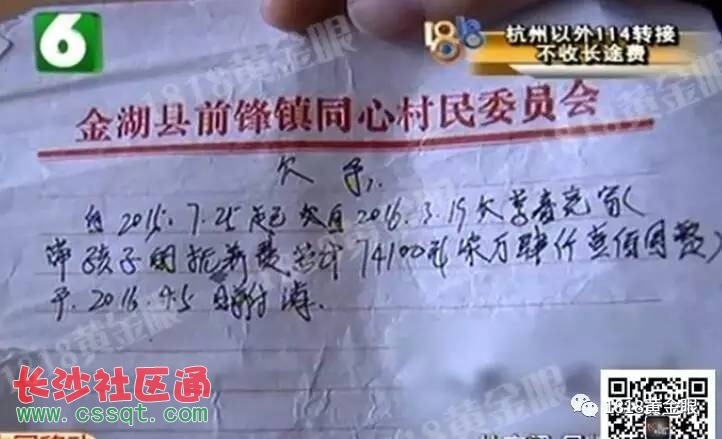 6
1818
杭州以外114转接
不收长途费
1818黄金眼
金湖县前锋镇同心村民委员会
欠字
自2015.7.25起 欠自2016.3.19欠
带孩子的抚养费总计74100元(柒万肆仟壹佰圆整)
于.2016.4.5日前付清.
长沙社区通
www.cssqt.com
1818黄金眼